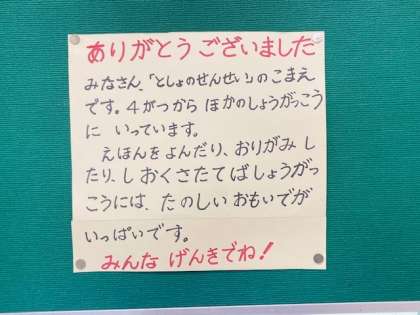 ありがとうございました
みなさん、「としょのせんせい」のこまえ
です。4がつから ほかのしょうがっこう
に いっています。
えほんをよんだり、おりがみ し
たり、し おくさたてばしょうがっ
こうには、たのしいおもいでが
いっぱいです。
みんな げんきでね!